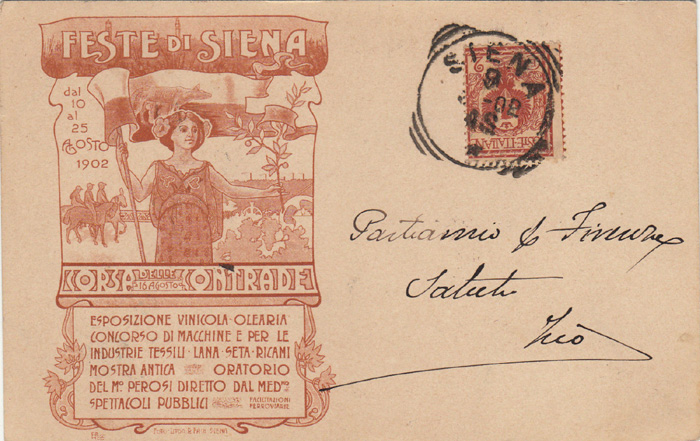 FESTE DI SIENA
dal
10
al
25
AGOSTO
1902
CORSA DELLE CONTRADE
16 AGOSTO
ESPOSIZIONE VINICOLA · OLEARIA
CONCORSO DI MACCHINE E PER LE
INDUSTRIE TESSILI · LANA · SETA · RICAMI
MOSTRA ANTICA ORATORIO
DEL Mº PEROSI DIRETTO DAL MEDMO
SPETTACOLI PUBBLICI FACILITAZIONI
FERROVIARIE
SIENA
9
-02
POSTE ITALIANE
Partiamo
Firenze
Saluti